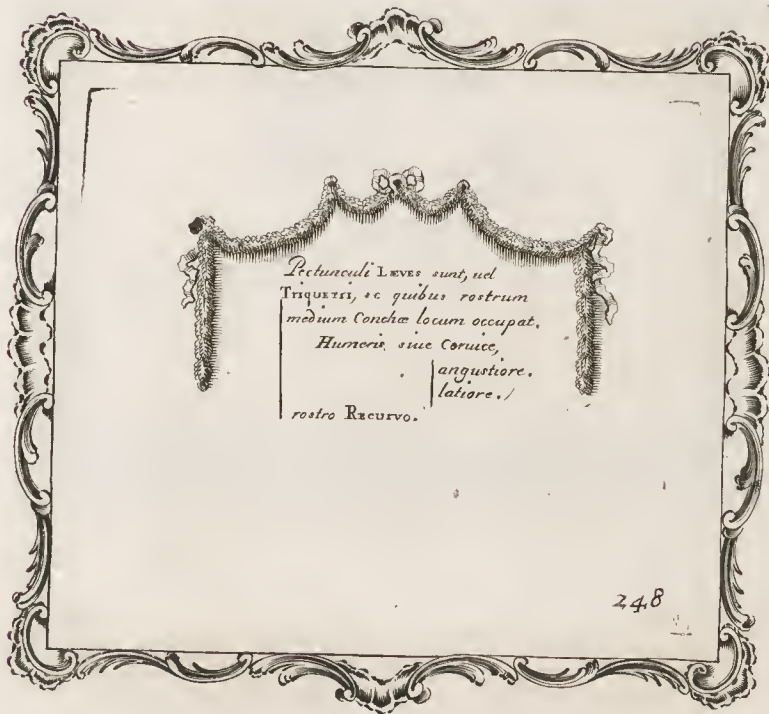 Pectunculi LÆVES sunt, uel
TRIQUETRI, sc quibus rostrum
medium Conchæ locum occupat.
Humeris, siue Ceruice,
angustiore.
latiore.
rostro RECURVO.
248